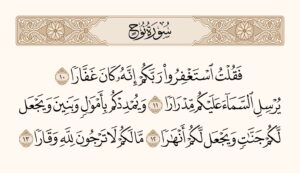 سُورَةُ نُوحٍ
فَقُلْتُ ٱسْتَغْفِرُوا۟ رَبَّكُمْ إِنَّهُۥ كَانَ غَفَّارًا ١٠
يُرْسِلِ ٱلسَّمَآءَ عَلَيْكُم مِّدْرَارًا ١١ وَيُمْدِدْكُم بِأَمْوَٰلٍ وَبَنِينَ وَيَجْعَل
لَّكُمْ جَنَّٰتٍ وَيَجْعَل لَّكُمْ أَنْهَٰرًا ١٢ مَّا لَكُمْ لَا تَرْجُونَ لِلَّهِ وَقَارًا ١٣